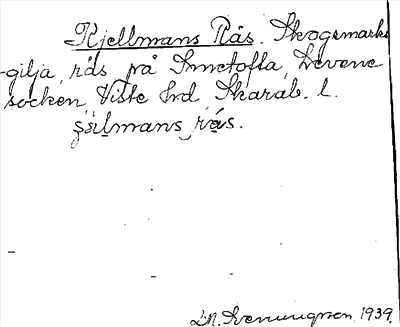 Kjellmans Rås. Skogsmarks
-gilja, rås på Smetofta, Levene
socken, Viste hrd Skarab. l.
s̩èi̩lmans rás.
1939.